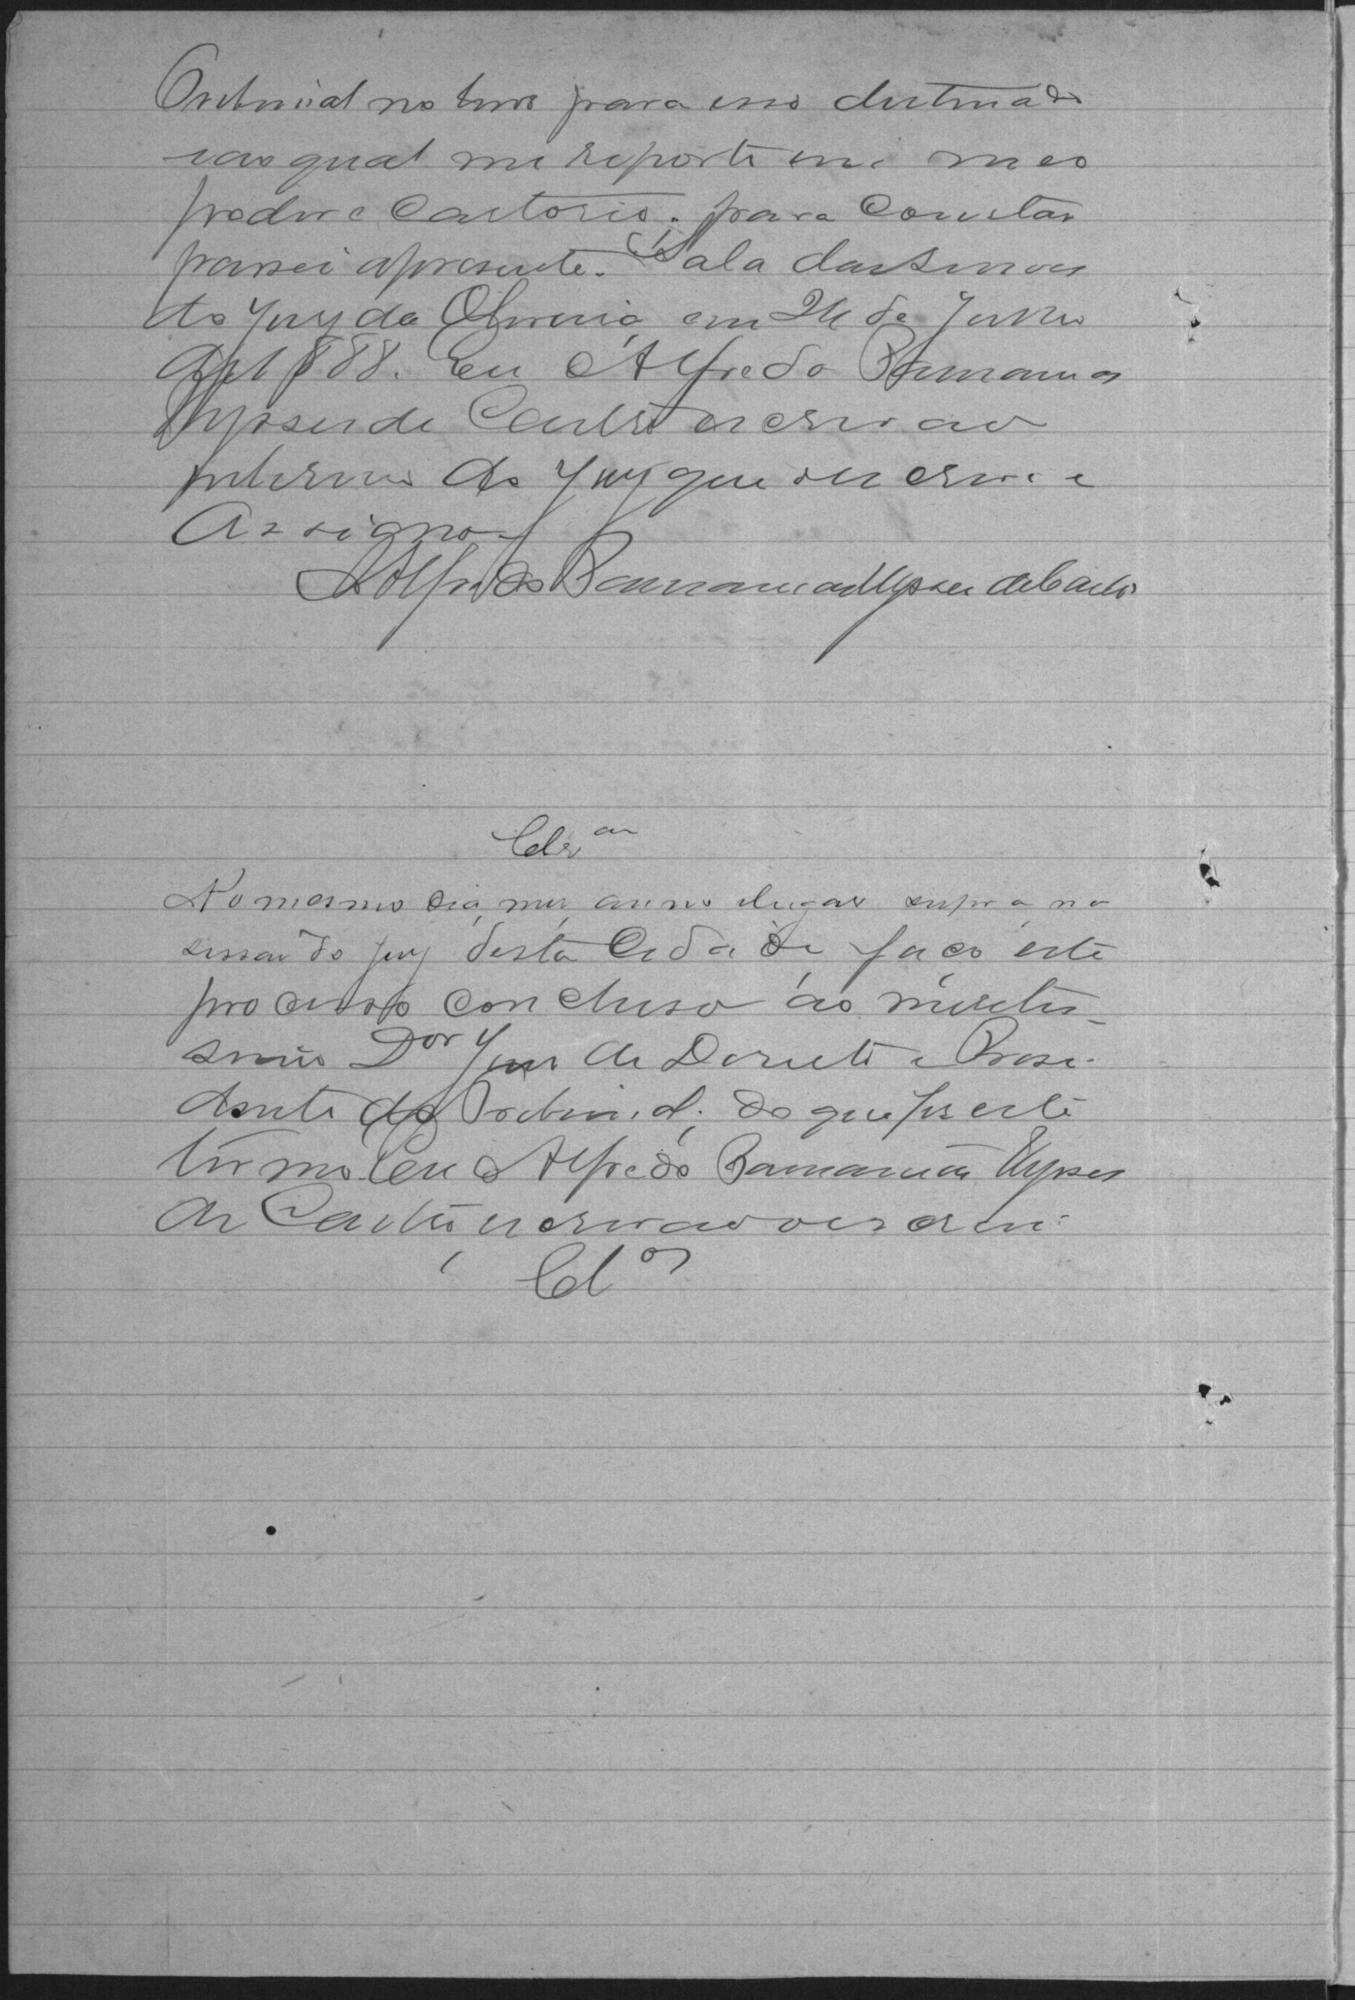 Tribunal no livro para esse destinado
e ao qual me reporto em meo
poder e Cartorio. para Constar
passei apresente. Sala das Sessões
do Jury da Oliveira em 26 de Junho
de 1888. Eu Alfredo
de Castro escrivão
interino do Jury que o escrevi e
Assigno
Alfredo de Castro
Clsam
No mesmo dia, mez, anno elugar supra, na
sessão do Jury desta Cidade faço este
processo concluso ao meretis-
simo Dor Juiz de Direito e Presi-
dente do Tribunal; do que fiz este
termo. Eu Alfredo
de Castro escrivão o escrevi.
Clos